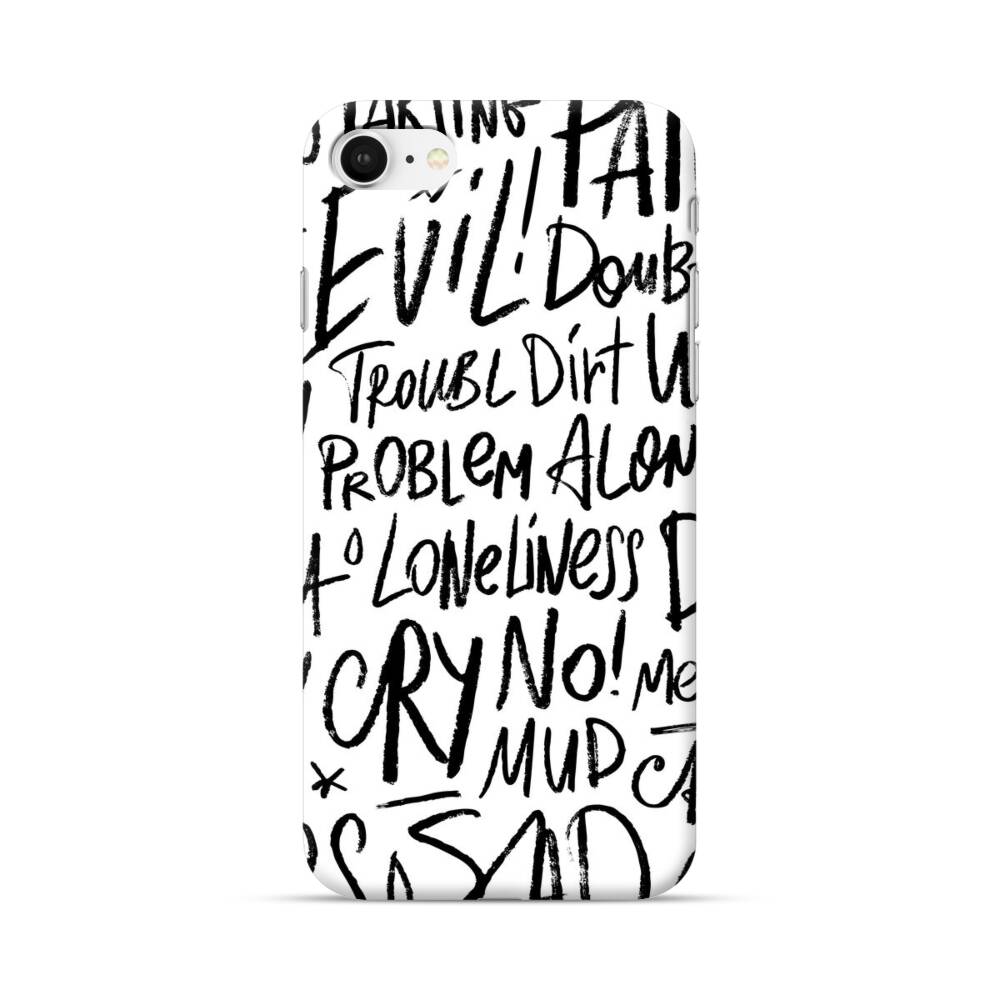 EVIL!
Doub
TROUBL Dirt
PROBLEM ALON
LONELINESS D
CRY NO! Me
MUD
SAD